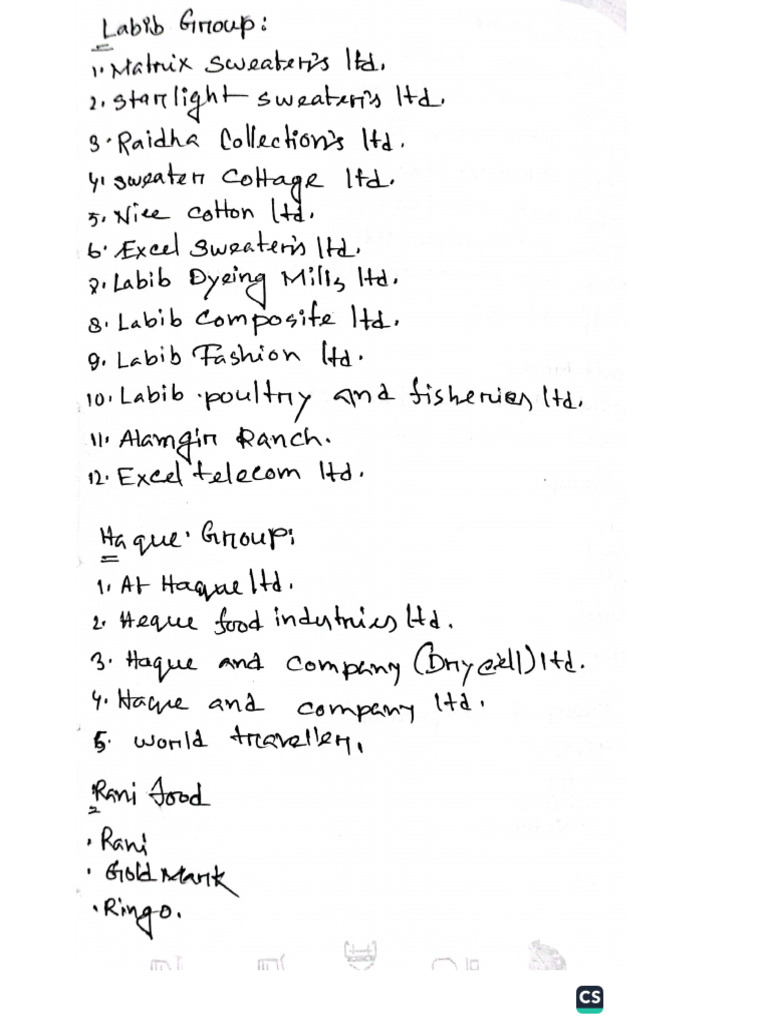 Labib Group:
1. Matrix Sweater's ltd.
2. Starlight Sweater's ltd.
3. Raidha Collection's ltd.
4. Sweater Cottage ltd.
5. Nice cotton ltd.
6. Excel Sweater's ltd.
7. Labib Dyeing Mills ltd.
8. Labib Composite ltd.
9. Labib Fashion ltd.
10. Labib poultry and fisheries ltd.
11. Alamgir Ranch.
12. Excel telecom ltd.
Haque Group:
1. At Haque ltd.
2. Heque food industries ltd.
3. Haque and company (Dry cell) ltd.
4. Haque and company ltd.
5. World traveller.
Rani food
• Rani
• Gold Mark
• Ringo.
CS